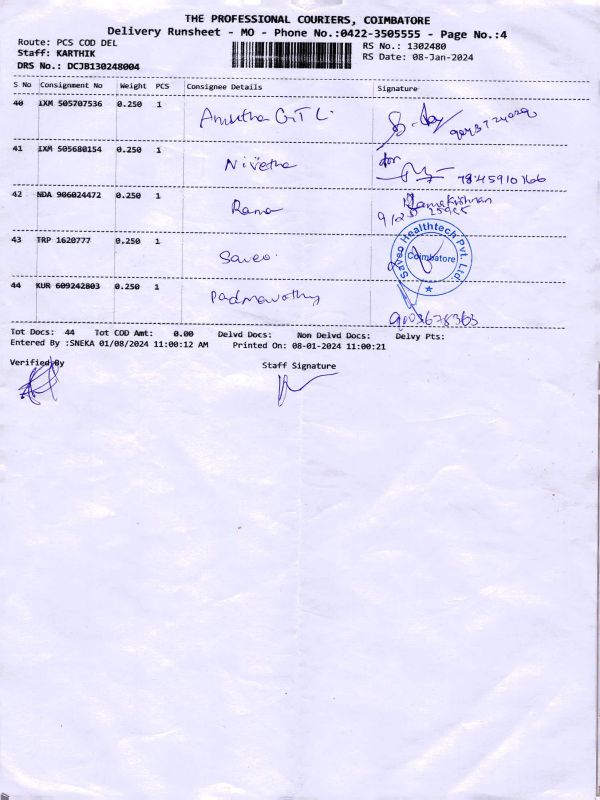 THE PROFESSIONAL COURIERS, COIMBATORE
Delivery Runsheet - MO - Phone No.:0422-3505555 - Page No.:4
Route: PCS COD DEL
RS No.: 1302480
Staff: KARTHIK
RS Date: 08-Jan-2024
DRS No.: DCJB130248004
S No Consignment No Weight PCS Consignee Details Signature
40 IXM 505707536 0.250 1 Amutha GTL
41 IXM 505680154 0.250 1 Nivetha for
7845910766
42 NDA 906024472 0.250 1 Rama Ramakrishnan
43 TRP 1620777 0.250 1 Saveo
Saveo Healthtech Pvt. Ltd.
Coimbatore
44 KUR 609242803 0.250 1 Padmavathy
9003678363
Tot Docs: 44 Tot COD Amt: 0.00 Delvd Docs: Non Delvd Docs: Delvy Pts:
Entered By :SNEKA 01/08/2024 11:00:12 AM Printed On: 08-01-2024 11:00:21
Verified By
Staff Signature